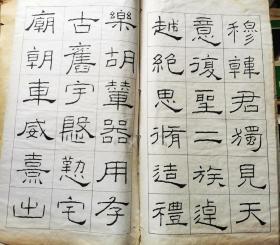 穆韓君獨見天
意復聖二族逴
越絕思脩造禮
樂胡輦器用存
古舊宇慇懃宅
廟朝車威熹出